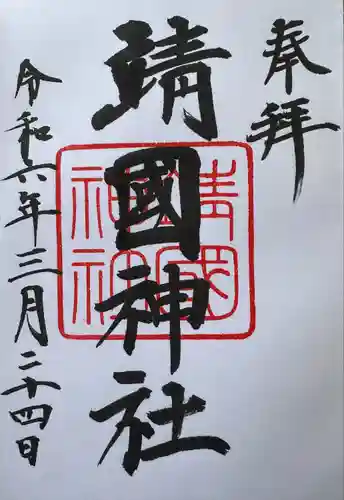 奉拝
靖國神社
靖國
神社
令和六年三月二十四日